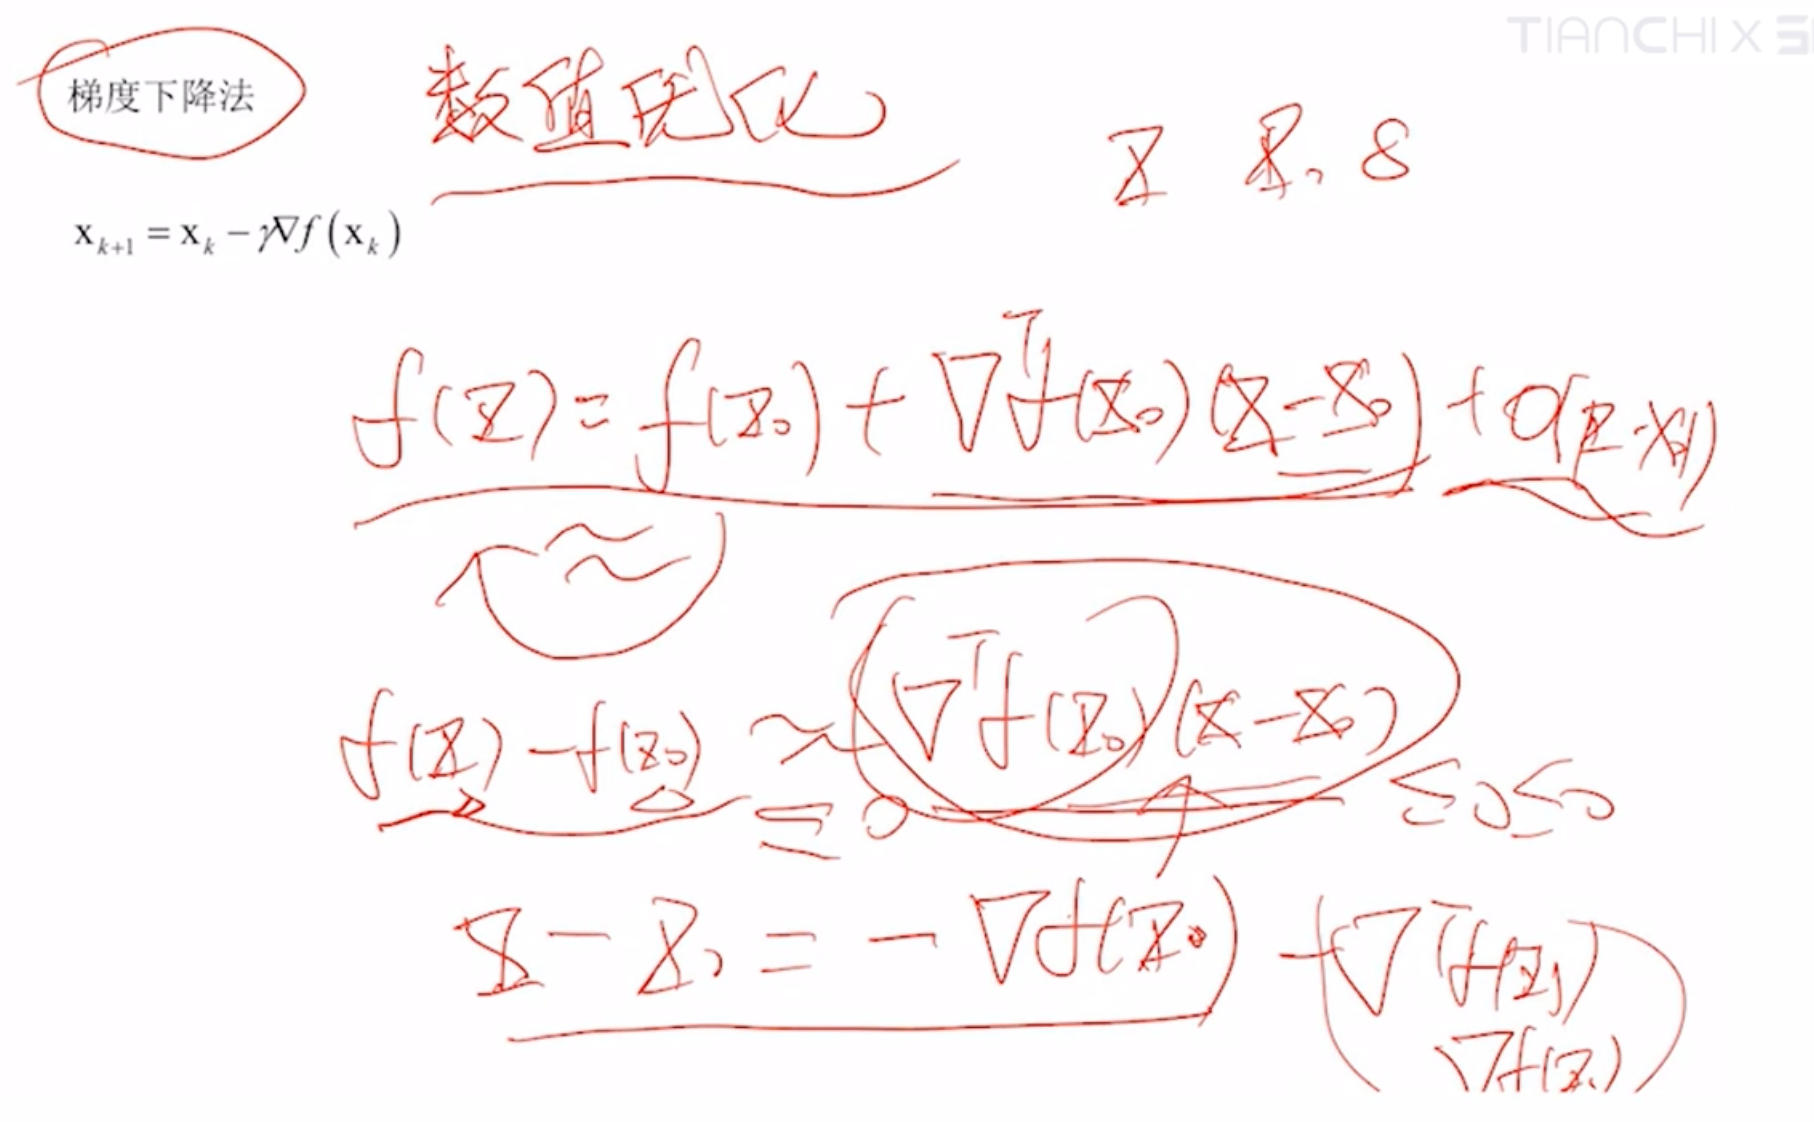 TIANCHI X
梯度下降法 数值优化
x x₀ δ
x_{k+1} = x_k − γ∇f(x_k)
f(x) = f(x₀) + ∇ᵀf(x₀)(x − x₀) + o(|x − x₀|)
≈
f(x) − f(x₀) ≈ ∇ᵀf(x₀)(x − x₀)
≤ 0 ≤ 0 ≤ 0
x − x₀ = −∇f(x₀) −∇ᵀf(x₀)
∇f(x₀)